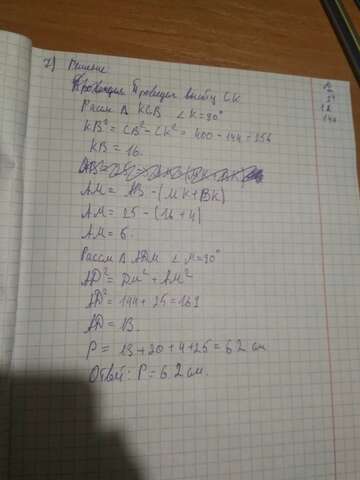 2) Решение
Проведём высоту CK
Рассм Δ KCB ∠K=90°
KB²=CB²-CK²=400-144=256
KB=16.
AM=AB-(MK+BK)
AM=25-(16+4)
AM=6.
Рассм Δ ADM ∠M=90°
AD²=DM²+AM²
AD²=144+25=169
AD=13.
P=13+20+4+25=62 см
Ответ: P=62 см.